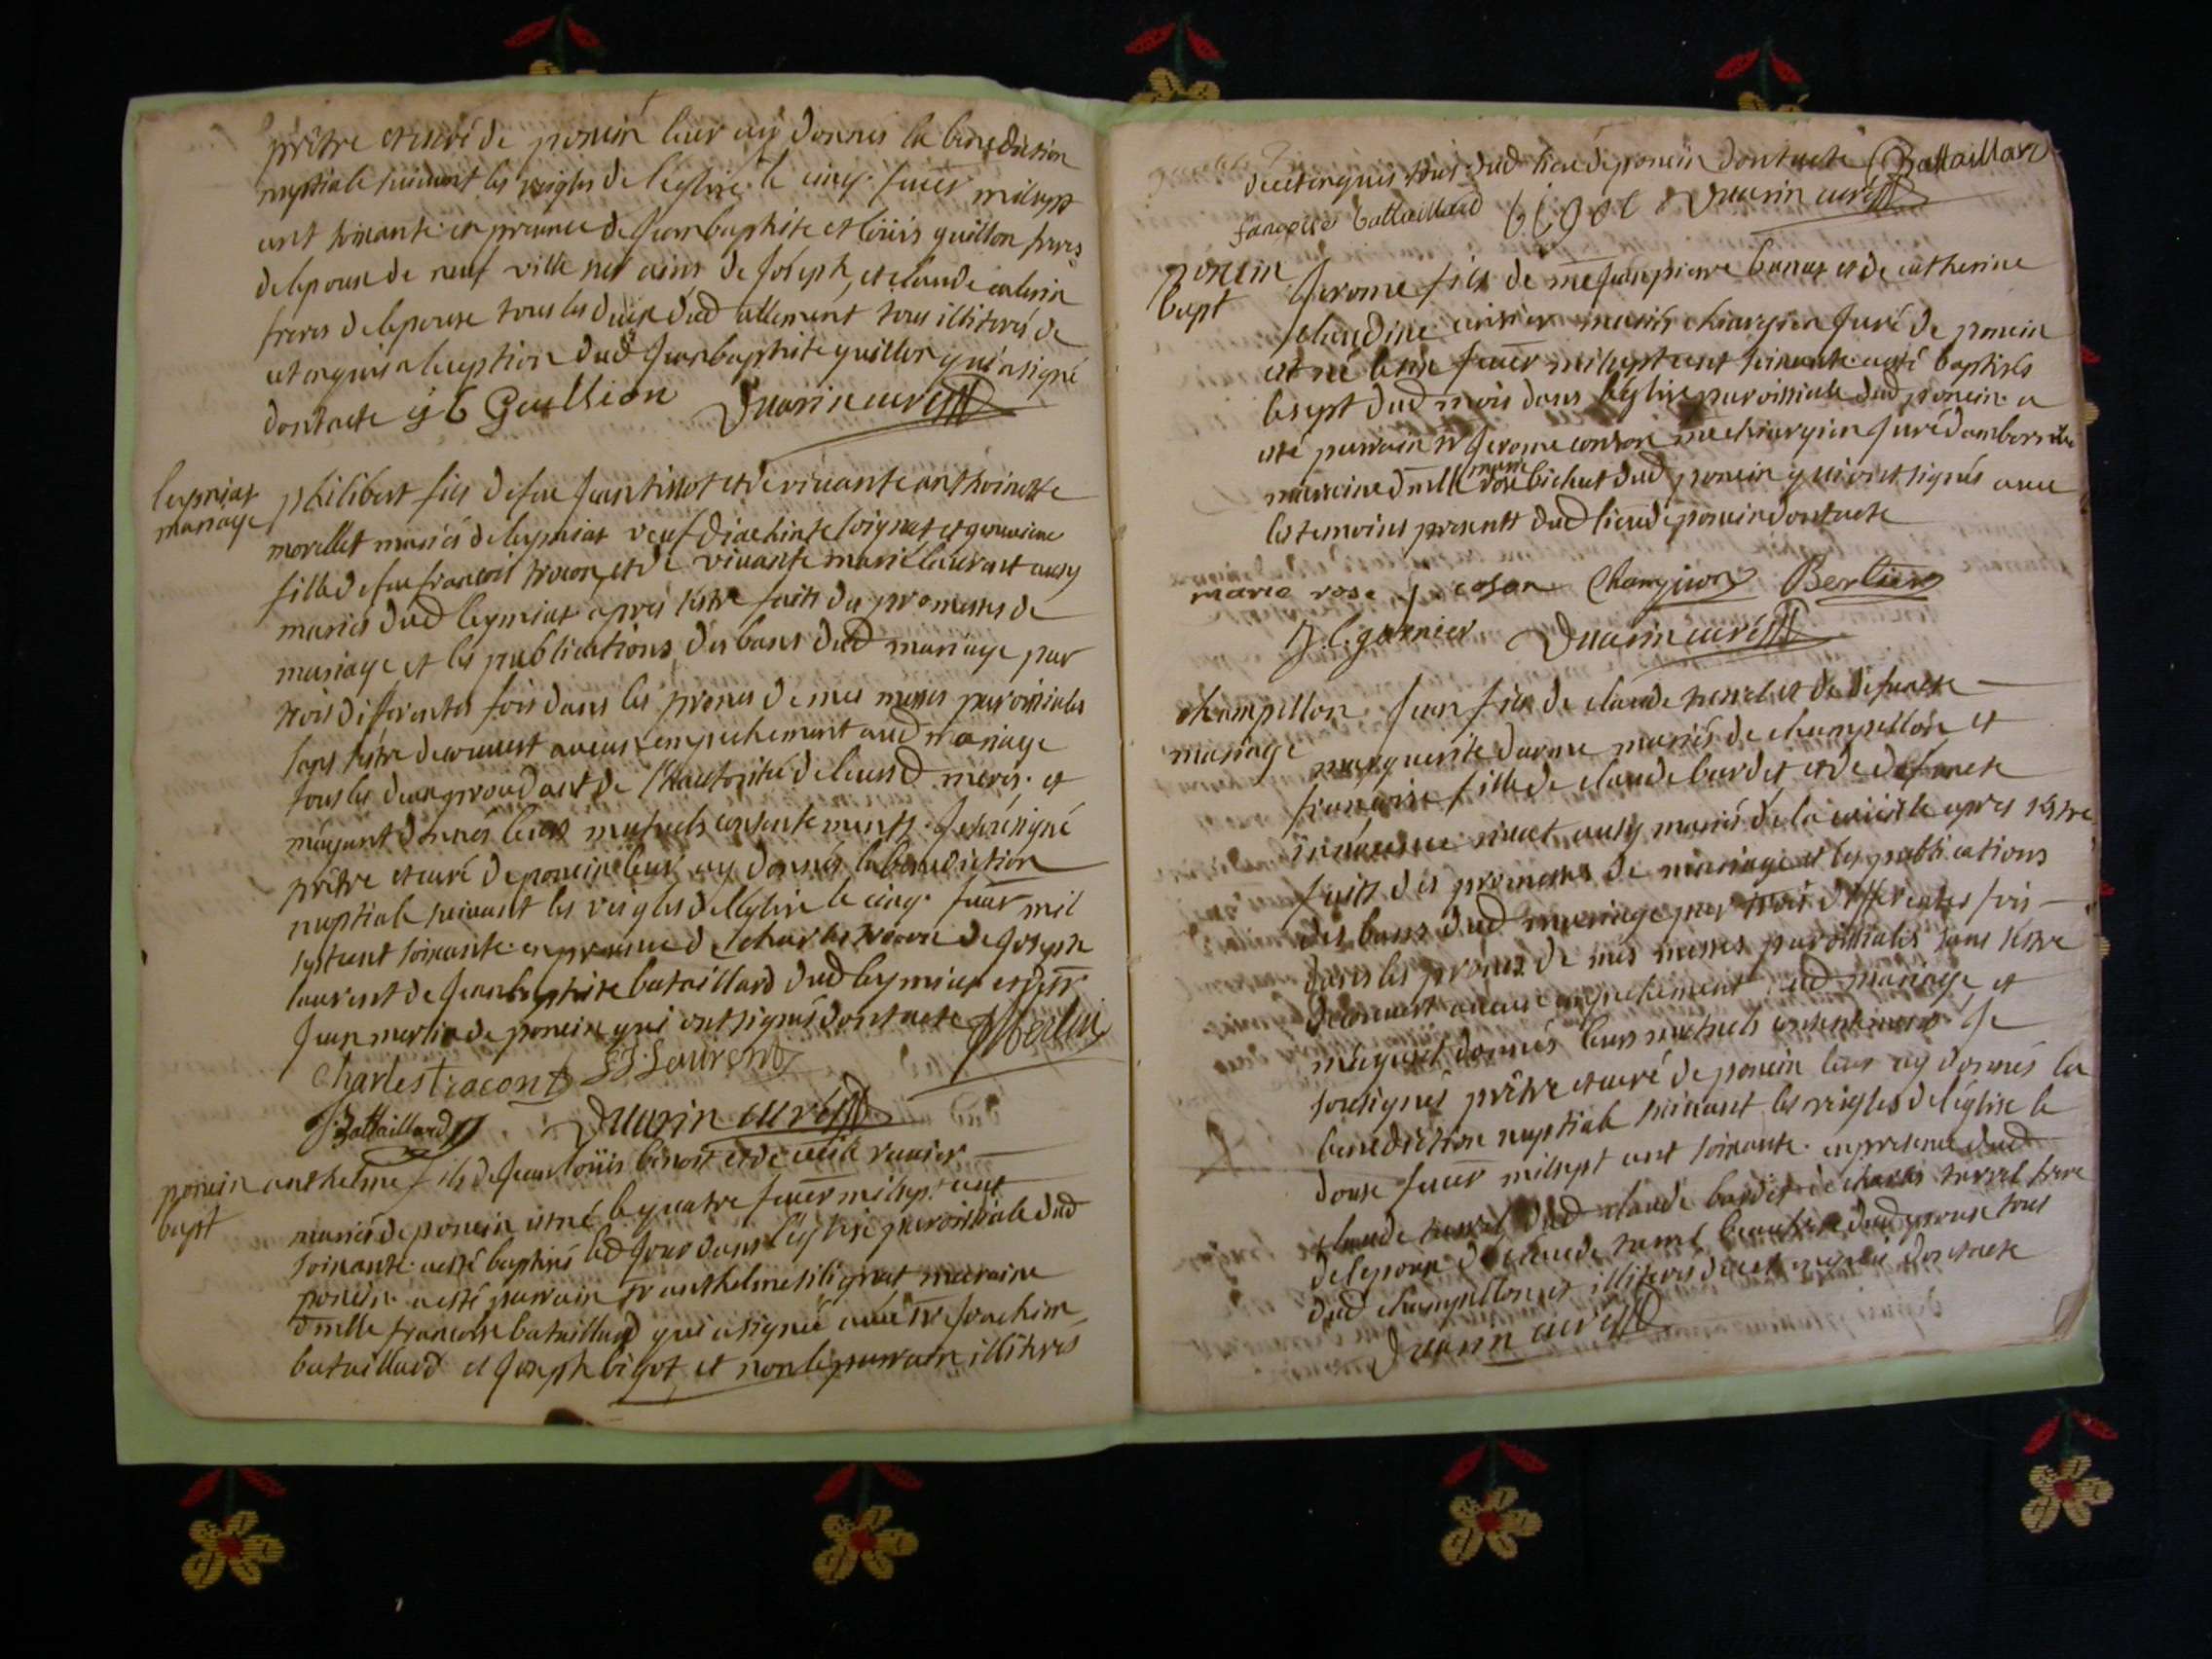 prêtre et curé de poncin leur ay donnés la benediction
nuptiale suivant les reigles de l'eglise le cinq fevr milsept
cent soixante en presence de jeanbaptiste et loüis guillon freres
de lepoux de neuf ville sur ains de joseph et claude
freres de lepouse tous les deux dud allement tous illiterés de
ce enquis a lexeption dud jeanbaptiste guillon qui a signé
dont acte j b Guillion Duarin curé
leymiat
mariage
philibert fils de feu jean tissot et de vivante anthoinette
morellet mariés de leymiat veuf diachinte loignat et
fille de feu francois tracon et de vivante marie laurent aussy
mariés dud leymiat apres sestre faits des promesses de
mariage et les publications des bans dud mariage par
trois diferentes fois dans les prones de mes messes paroissiales
sans sestre decouvert aucun empechement aud mariage
tous les deux procedant de l'hautorité de leursd meres et
mayant donnés leurs mutuels consentements je soussigné
prêtre et curé de poncin leur ay donnés la benediction
nuptiale suivant les reigles de l'eglise le cinq fevr mil
sept cent soixante en presence de charles tracon de joseph
laurent de jeanbaptiste bataillard dud leymiat et de sr
jean merlin de poncin qui ont signés dont acte Merlin
Charles tracont JJ Laurent
J Battaillard Duarin curé
poncin
bapt
anthelme fils de jean loüis benoit et de ravier
mariés de poncin est né le quatre fevr milsept cent
soixante a esté baptisés led jour dans l'eglise paroissiale dud
poncin a esté parrain sr anthelme silignat marraine
dmlle francoise bataillard qui a signée avec sr joachim
bataillard et joseph bigot et non le parrain illiteres
de ce enquis tous dud lieu de poncin dont acte Battaillard
bigot Duarin curé
battaillard
poncin
bapt
jerome fils de me jean pierre et de catherine
claudine mariés chirurgien juré de poncin
est né le six fevr milsept cent soixante a esté baptisés
le sept dud mois dans l'eglise paroissiale dud poncin a
esté parrain sr jerome conson me chirurgien juré
marraine dmlle marie rose bichat dud poncin qui ont signés avec
les temoins presents dud lieu de poncin dont acte
marie rose J coson Champion Berlier
garnier Duarin curé
champillon
mariage
jean fils de claude et de defuncte
marguerite darme mariés de champillon et
francoise fille de claude bardet et de defuncte
aussy mariés de la apres sestre
faits des promesses de mariage et les publications
des bans dud mariage par trois differentes fois
dans les prones de mes messes paroissiales sans sestre
decouvert aucun empechement aud mariage et
mayant donnés leurs mutuels consentements je
sousignés prêtre et curé de poncin leur ay donnés la
benediction nuptiale suivant les reigles de l'église le
douze fevr milsept cent soixante en presence dud
claude dud claude bardet de charles frere
de lepoux de claude beaufrere dud epoux tous
dud champillon et illiterés de ce enquis dont acte
Duarin curé